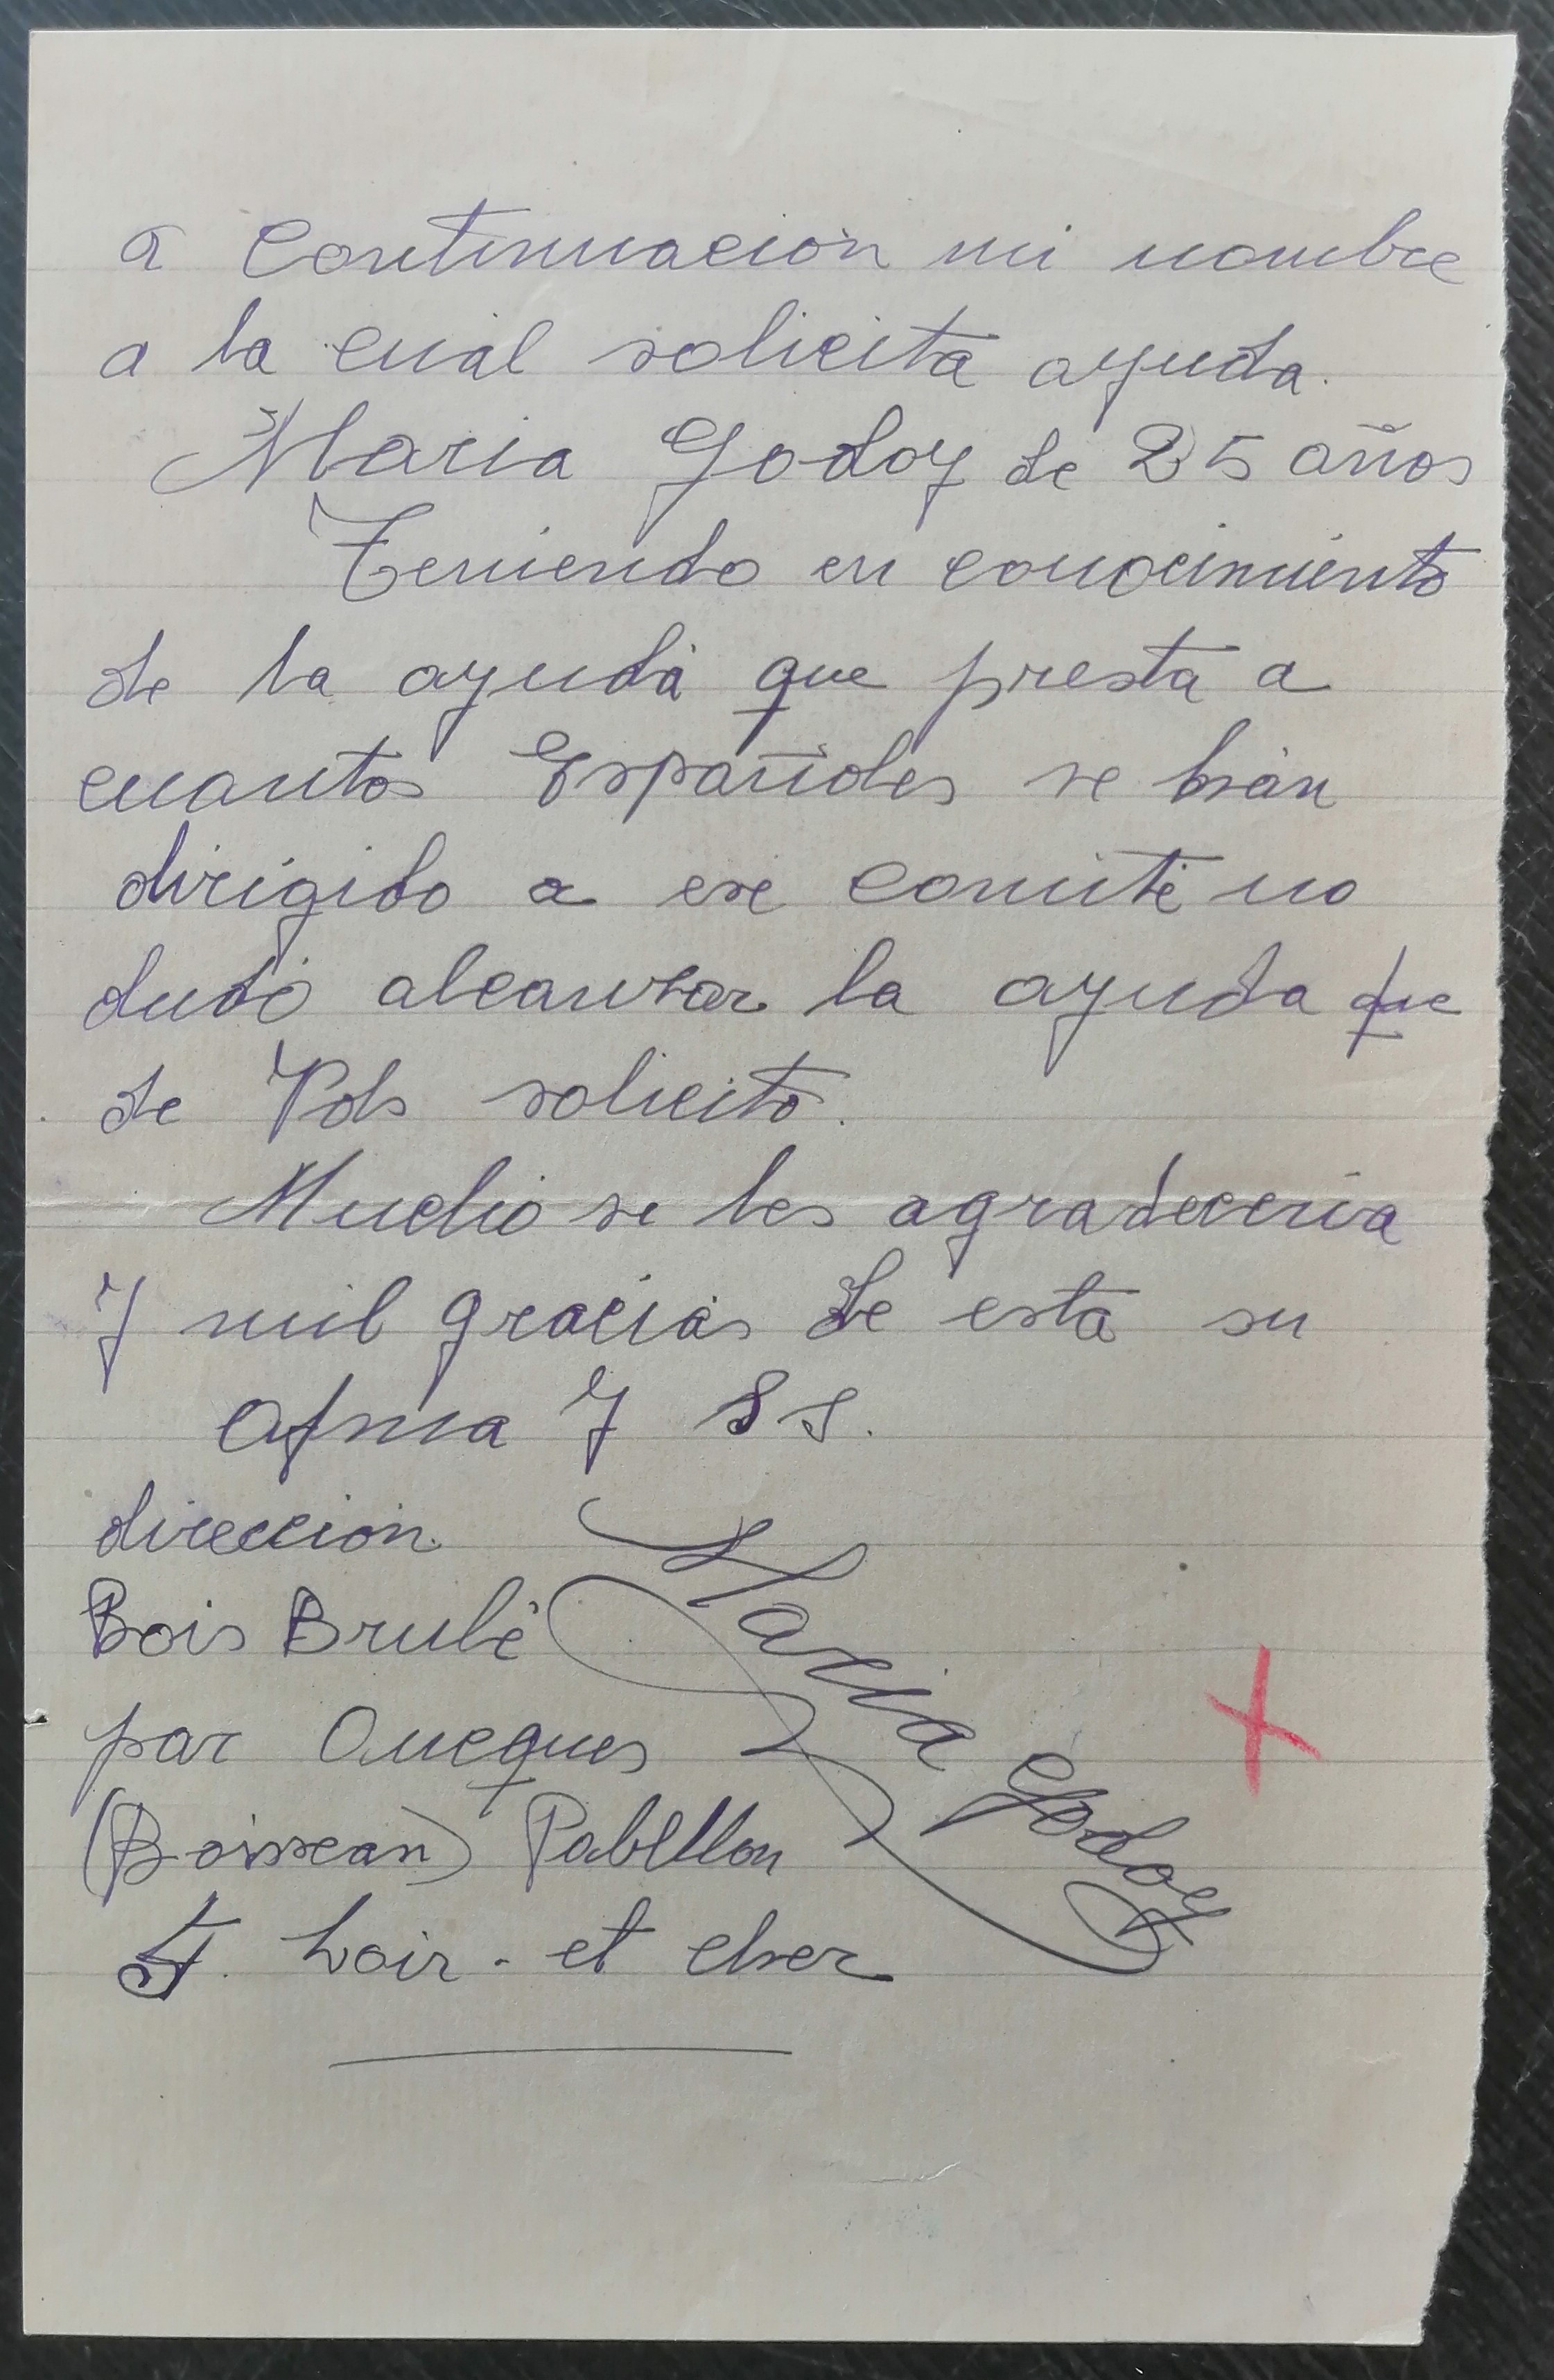 a continuacion mi nombre
a la cual solicita ayuda.
Maria Godoy de 25 años
Teniendo en conocimiento
de la ayuda que presta a
cuantos Españoles se han
dirigido a ese comité no
dudo alcanzar la ayuda que
de Vds solicito.
Mucho se les agradeceria
y mil gracias de esta su
afma y S S.
direccion
Bois Brulé
par Oucques
(Boisseau) Pabellon
5. Loir-et cher
Maria Godoy